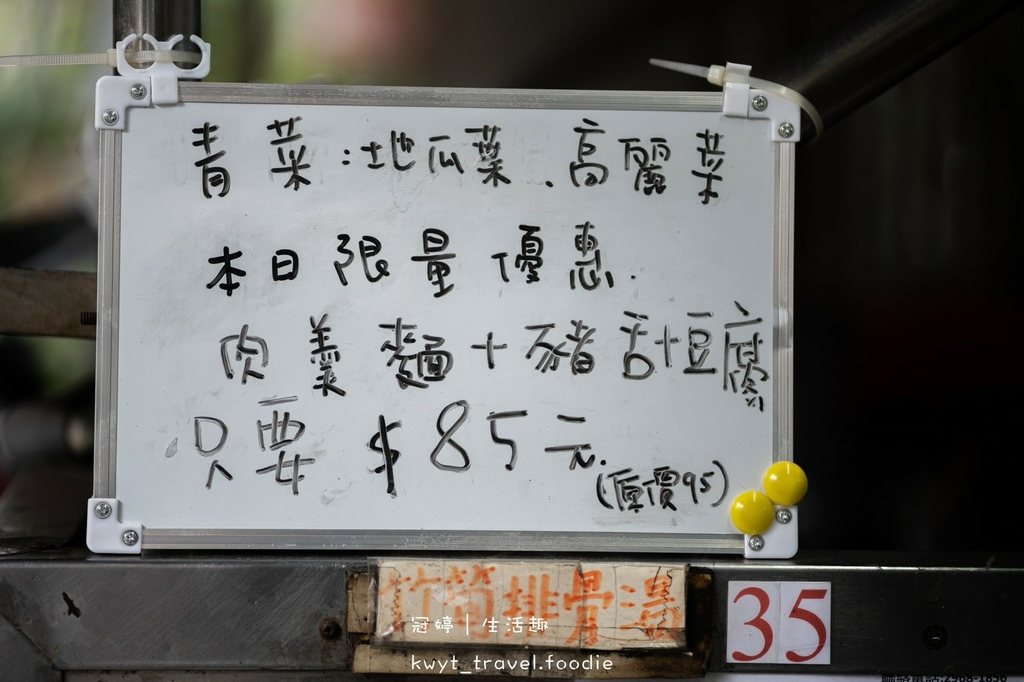 青菜:地瓜葉、高麗菜
本日限量優惠.
肉羹麵+豬舌+豆腐
只要 $85元.
(原價95)
竹筍排骨湯
35
冠婷 | 生活趣
kwyt_travel.foodie